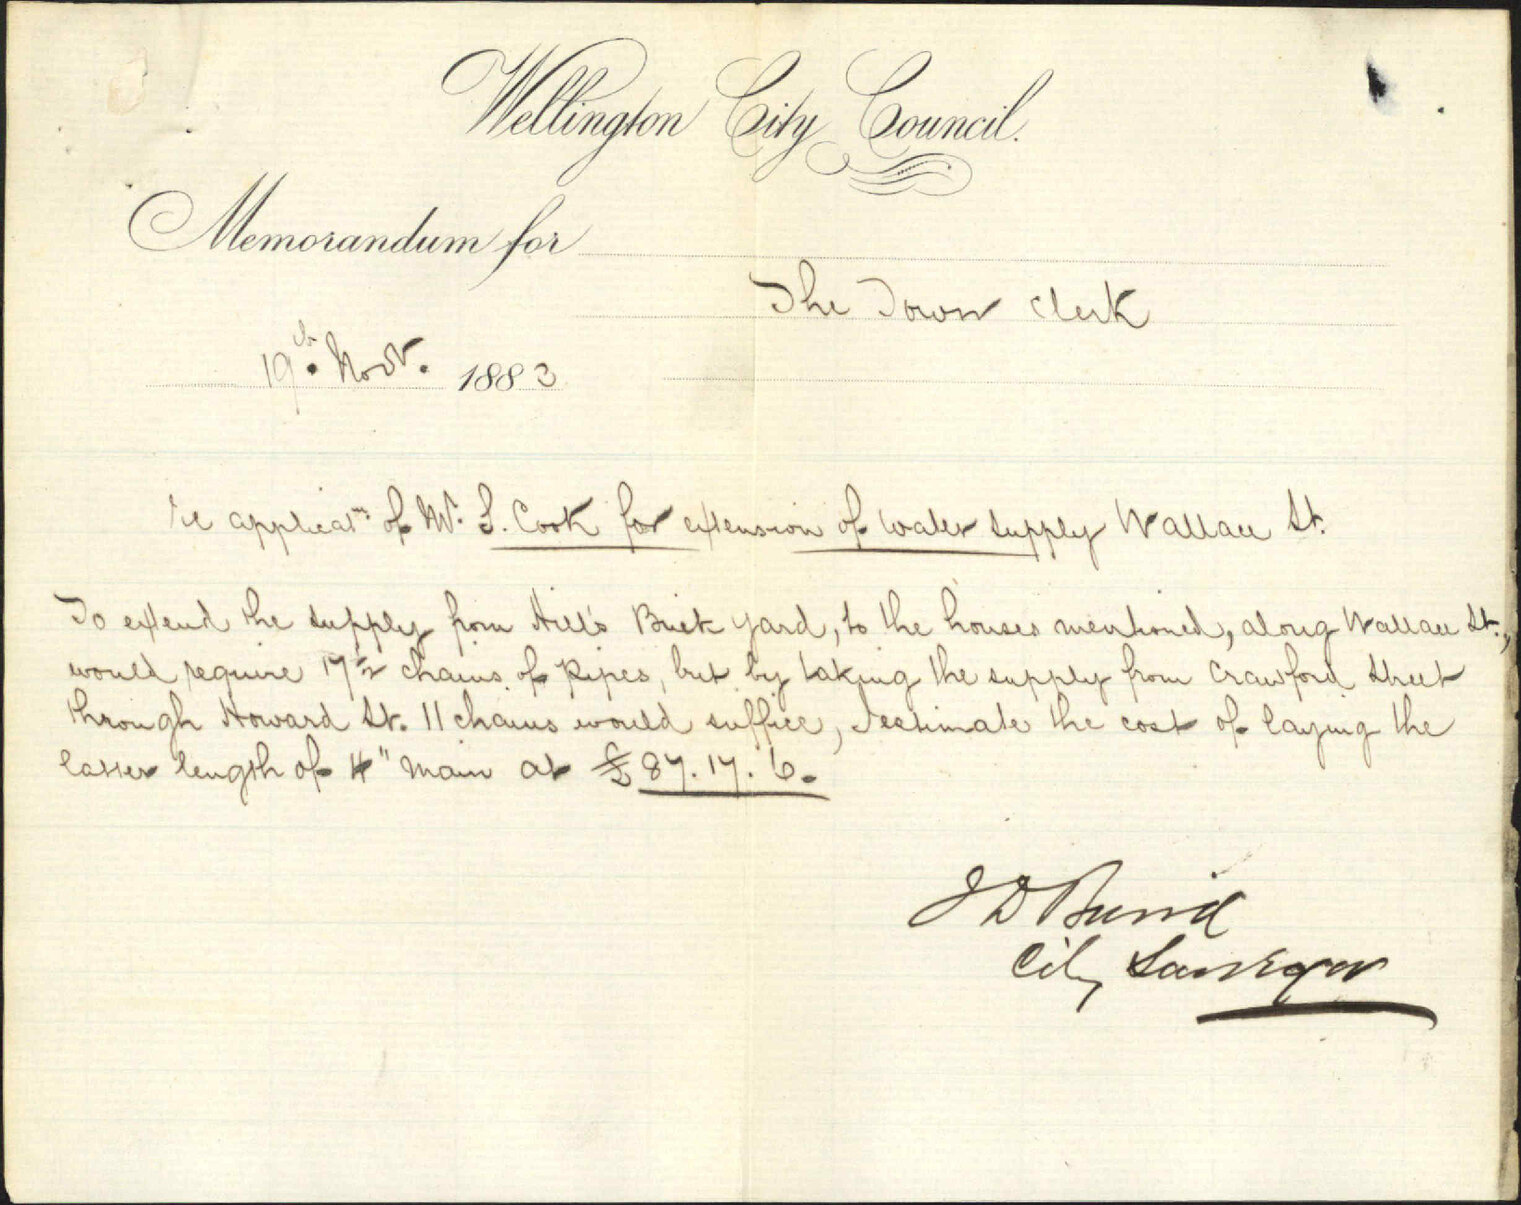 Wellington City Council.
Memorandum for
The Town Clerk
19th. Novr. 1883
re applicatn. of Mr. S. Cook for extension of water supply Wallace St.
To extend the supply from Hill's Brick yard, to the houses mentioned, along Wallace St.,
would require 17½ chains of pipes, but by taking the supply from Crawford Street
through Howard St. 11 chains would suffice, I estimate the cost of laying the
lasser length of 4" main at £87.17.6.
J D Baird
City Surveyor